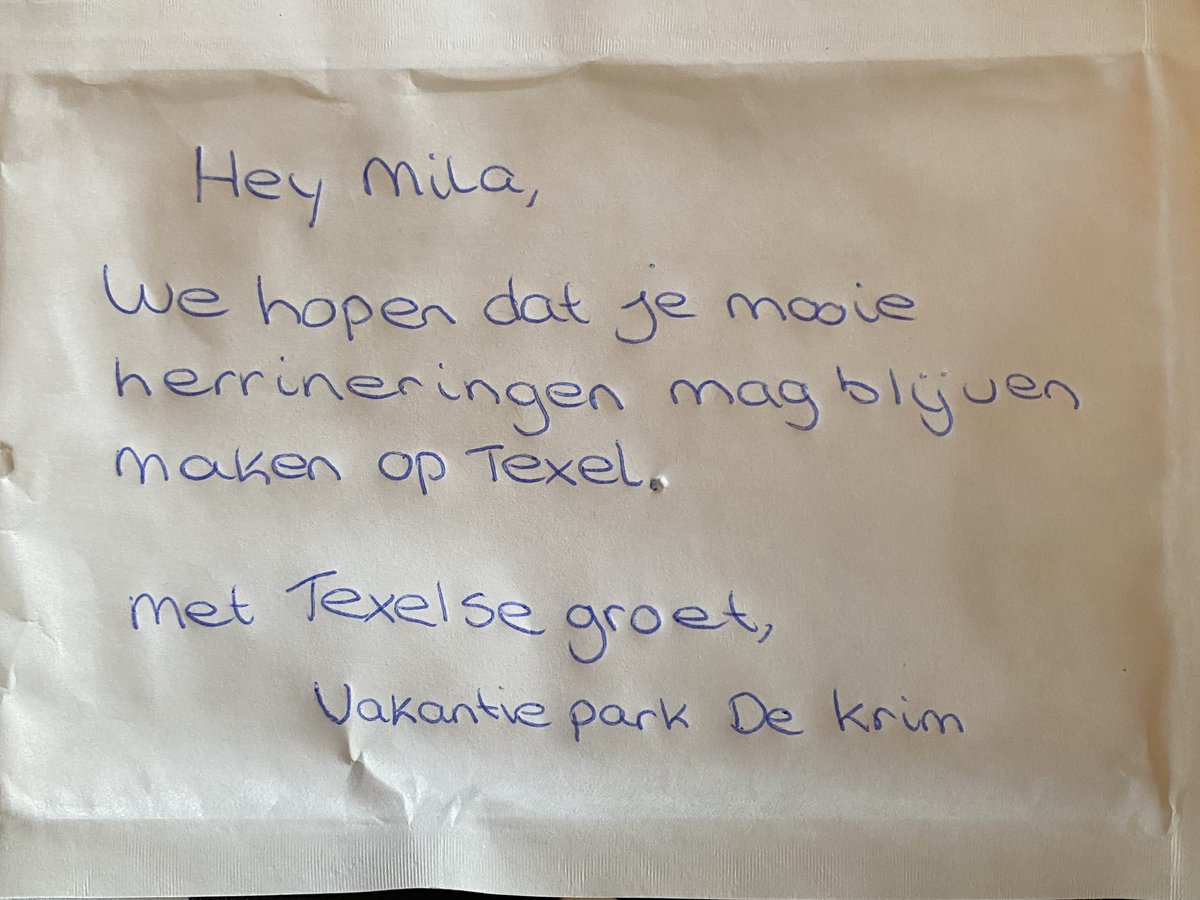 Hey Mila,
We hopen dat je mooie
herrineringen mag blijven
maken op Texel.
met Texelse groet,
Vakantie park De Krim